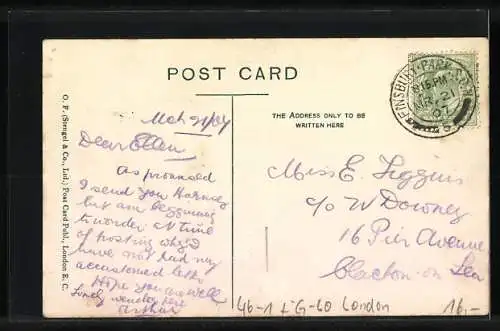 POST CARD
THE ADDRESS ONLY TO BE
WRITTEN HERE
FINSBURY PARK
8.15 PM
MR 21
07
O. F. (Stengel & Co., Ltd.) Post Card Publ., London E. C.
Mch 21/07
Dear Ellen
As promised
I send you Hornsey
but am beginning
to wonder
of posting
have not had my
accustomed letter
Hope you are well
Lovely weather here
Arthur
Miss E. Figgins
c/o W Downey
16 Pier Avenue
Clacton-on Sea
London
16,-